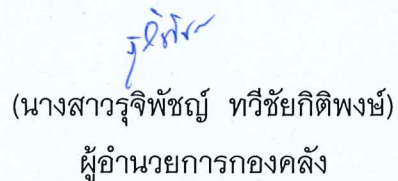 (นางสาวรุจิพัชญ์ ทวีชัยกิติพงษ์)
ผู้อำนวยการกองคลัง